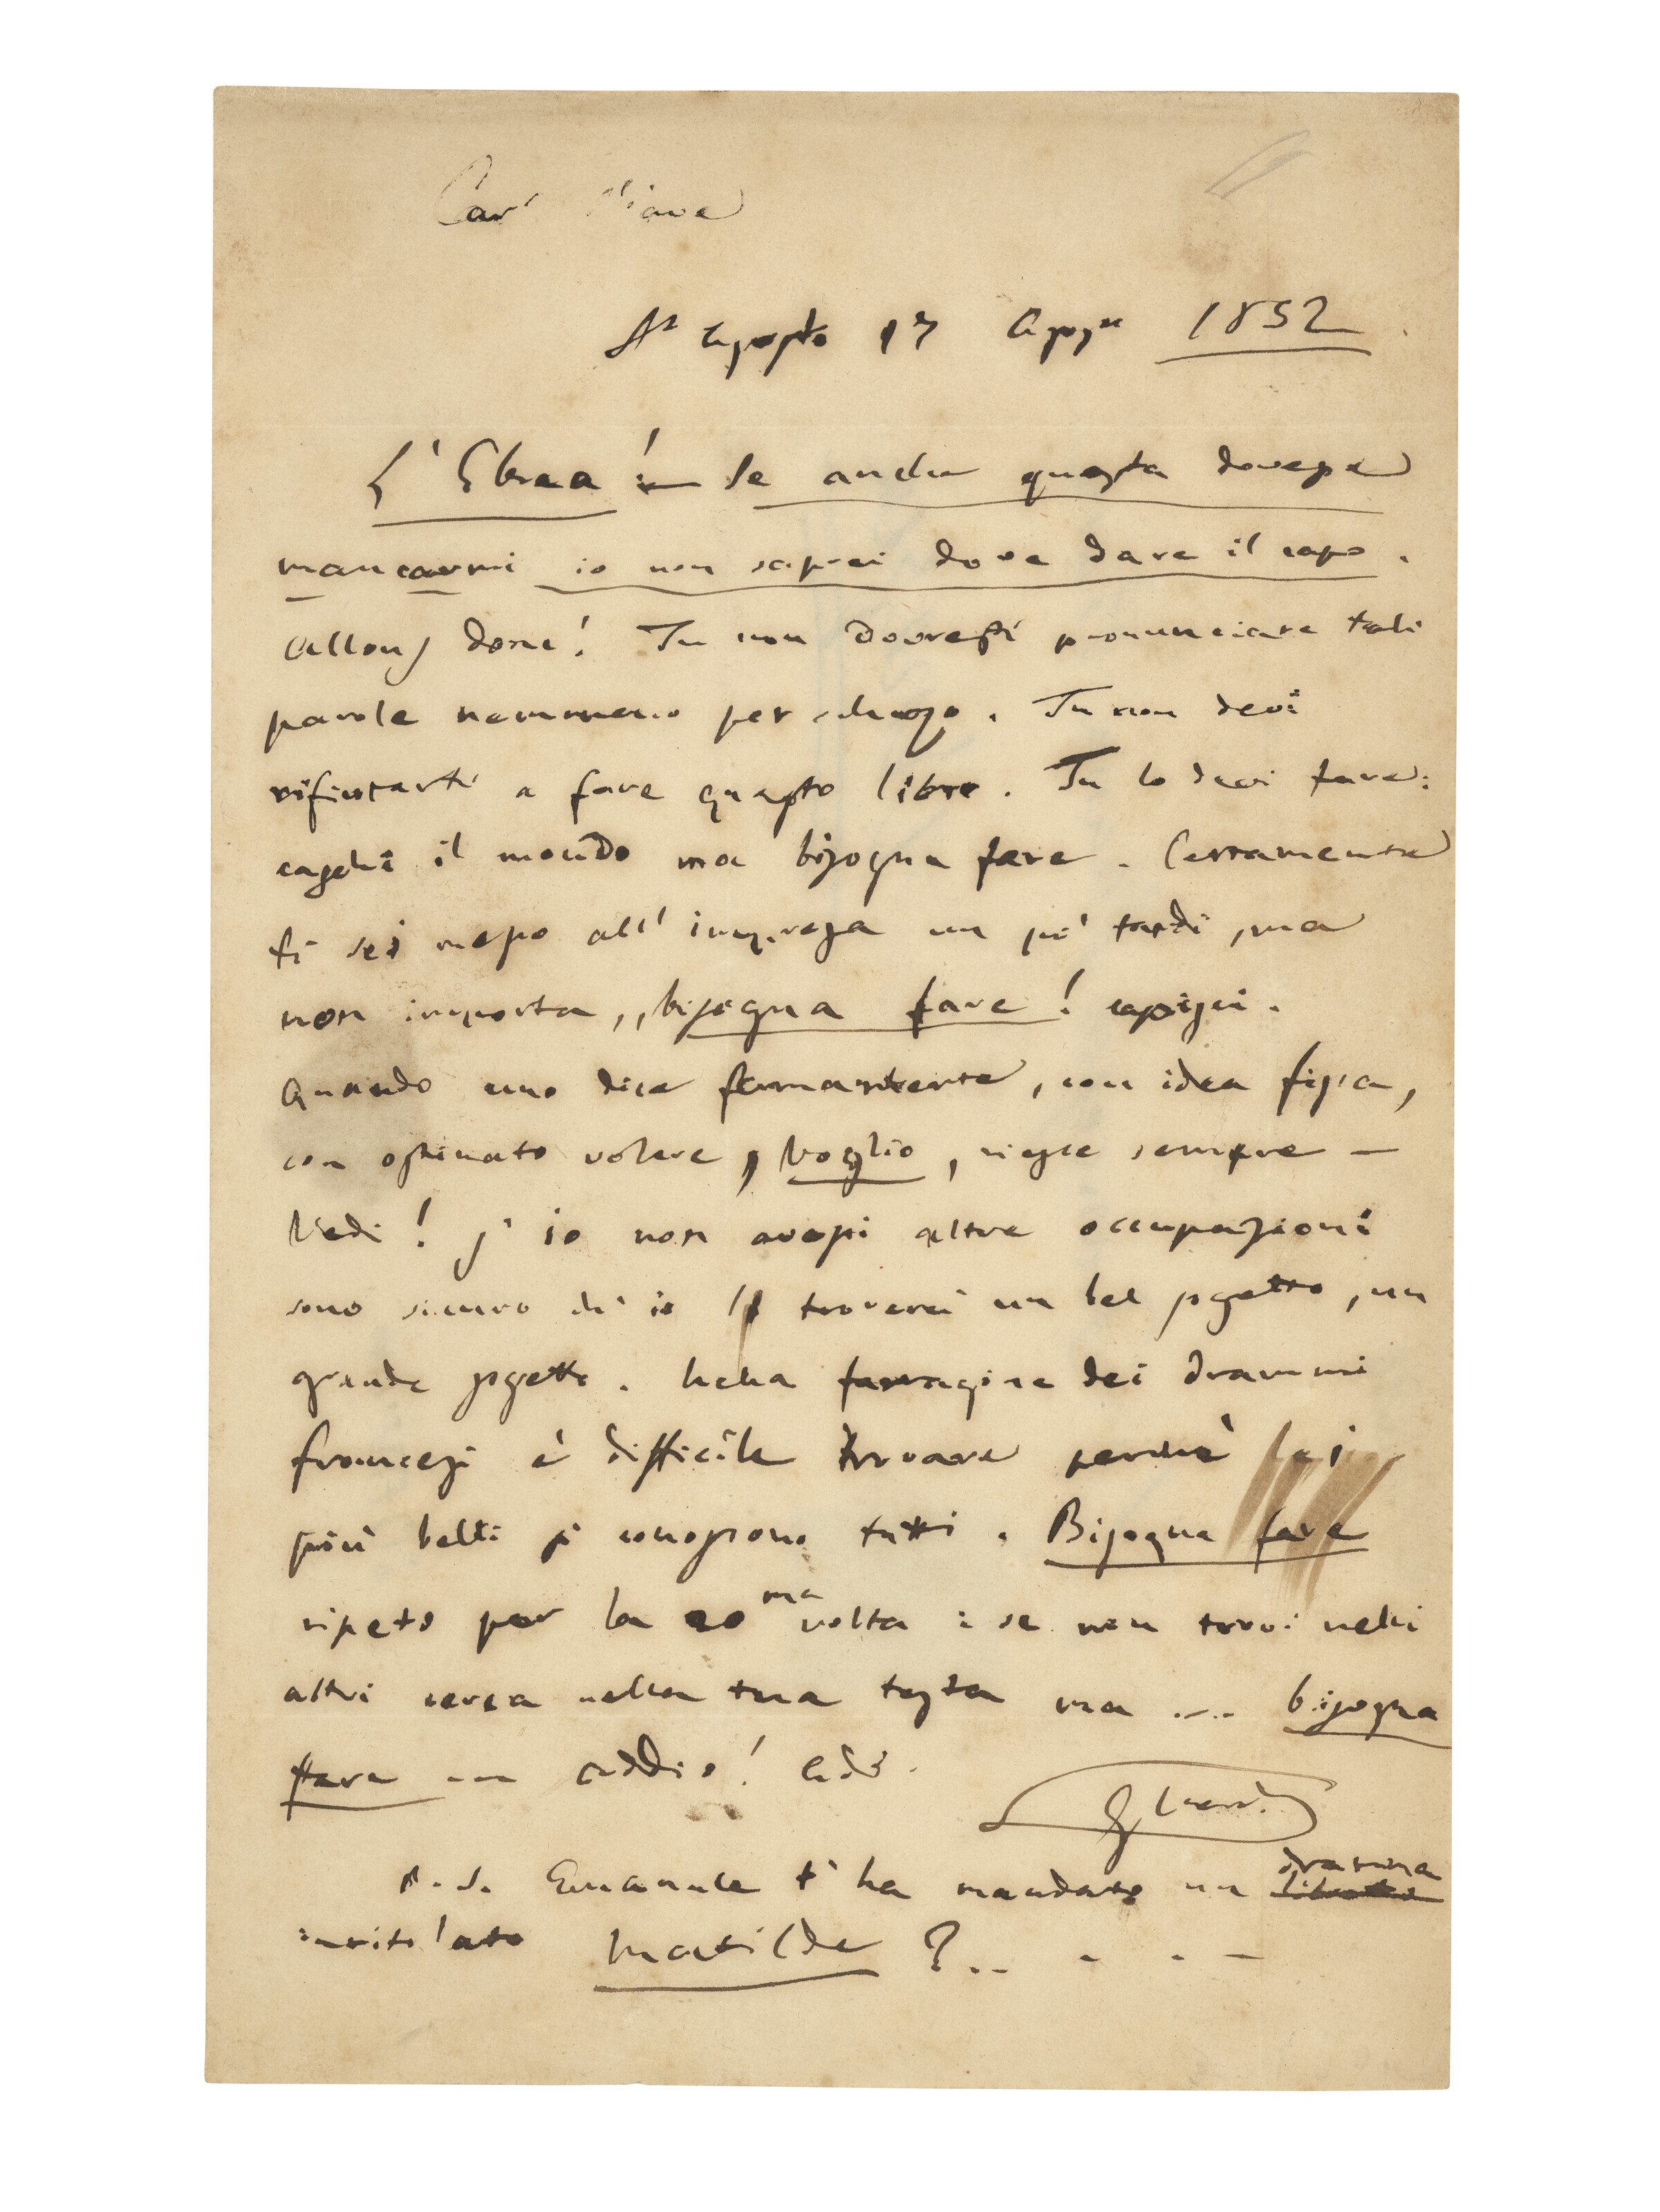 Caro Piave
St Agosto 17 Agos. 1852
L'Ebrea! — Se anche questa dovesse
mancarmi io non saprei dove dare il capo.
Allons donc! Tu non dovresti pronunciare tali
parole nemmeno per scherzo. Tu non devi
rifiutarti a fare questo libro. Tu lo devi fare:
caschi il mondo ma bisogna fare. Certamente
ti sei messo all'impresa un po' tardi, ma
non importa, bisogna fare! capisci.
Quando uno dice fermamente, con idea fissa,
con ostinato volere, voglio, riesce sempre —
Vedi! s'io non avessi altre occupazioni
sono sicuro ch'io troverei un bel sogetto, un
grande sogetto. Nella farragine dei drammi
francesi è difficile trovare perchè i
più belli si conoscono tutti. Bisogna fare
ripeto per la 20ma volta: se non trovi negli
altri cerca nella tua testa ma .... bisogna
fare — addio! add.
G Verdi
P.S. Emanuele t'ha mandato un dramma
intitolato Matilde?.. . . —